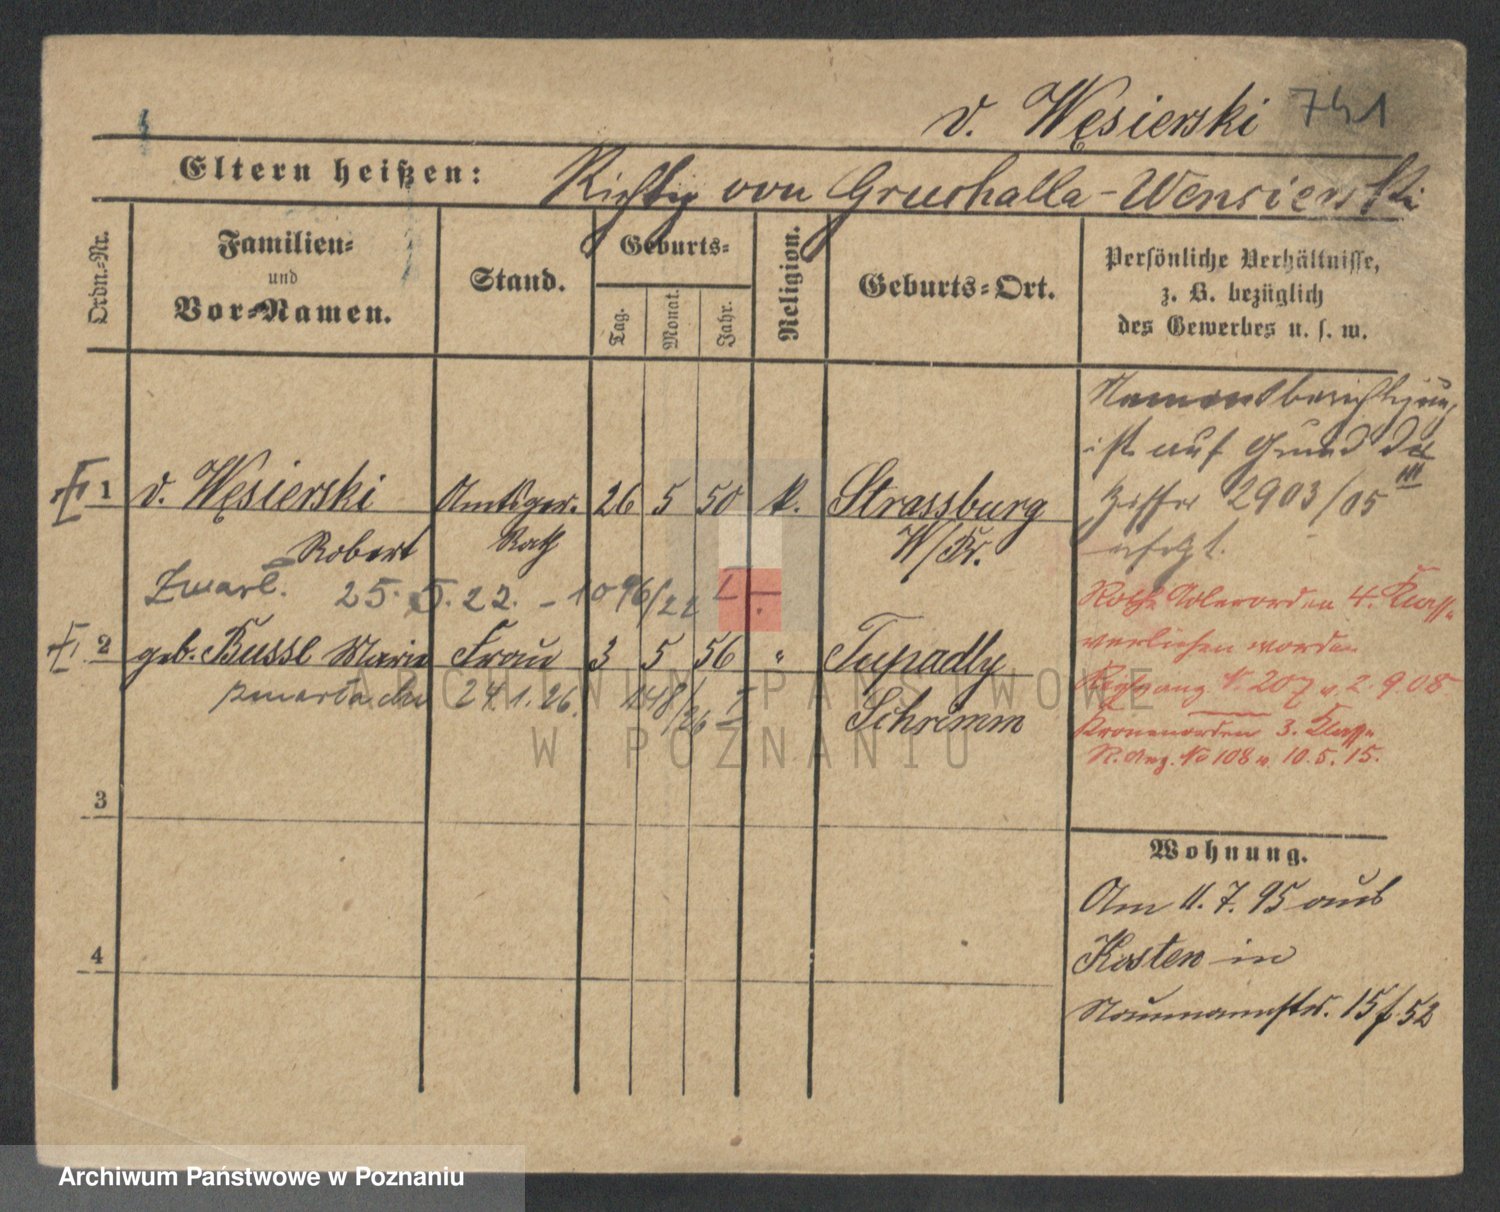 v. Węsierski 741
Eltern heißen: Richtig von Gruchalla-Wensierski
Ordn.-Nr.
Familien-
und
Vor-Namen.
Stand.
Geburts-
Tag.
Monat.
Jahr.
Religion.
Geburts-Ort.
Persönliche Verhältnisse,
z. B. bezüglich
des Gewerbes u. s. w.
Namensberichtigung
ist auf Grund der
Ziffer 2903/05 III
erfolgt.
1 v. Węsierski Amtsger. 26 5 50 k. Strassburg
Robert Rath W/Pr.
Zmarł. 25. 5. 22. - 1096/22
Roth. Adlerorden 4. Klasse
verliehen worden
2 geb. Busse Marie Frau 3 5 56 " Tupadly
zmarła dn 24.1.26. 148/26 Schrimm
207 v. 2. 9. 08
Kronenorden 3. Klasse
R. Anz. No 108 v. 10. 5. 15.
3
4
Wohnung.
Am 11. 7. 95 aus
Kosten in
Naumannstr. 15 f. 52
ARCHIWUM PAŃSTWOWE
W POZNANIU
Archiwum Państwowe w Poznaniu